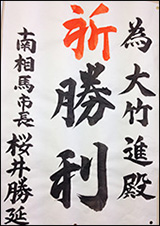 為大竹進殿
祈勝利
南相馬市長桜井勝延